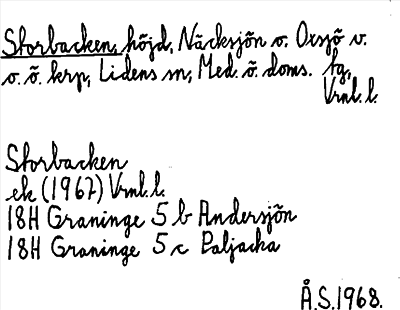 Storbacken, höjd, Näcksjön o. Oxsjö v.
o. ö. krp, Lidens sn, Med. ö. doms. tg,
Vrnl. l.
Storbacken
ek (1967) Vrnl. l.
18H Graninge 5 b Andersjön
18H Graninge 5 c Paljacka
Å.S.1968.